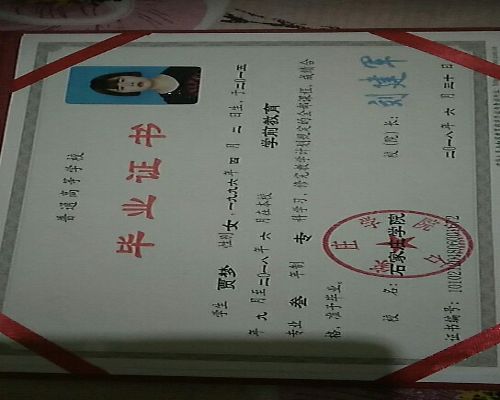 普通高等学校
毕业证书
学生 贾梦 性别 女，一九九六年 四 月 二 日生，于二〇一五
年 九 月至二〇一八年 六 月在本校 学前教育
专业 叁 年制 专 科学习，修完教学计划规定的全部课程，成绩合
格，准予毕业。
校 名：石家庄学院 校（院）长：刘建军
证书编号： 二〇一八年 六 月 三十 日